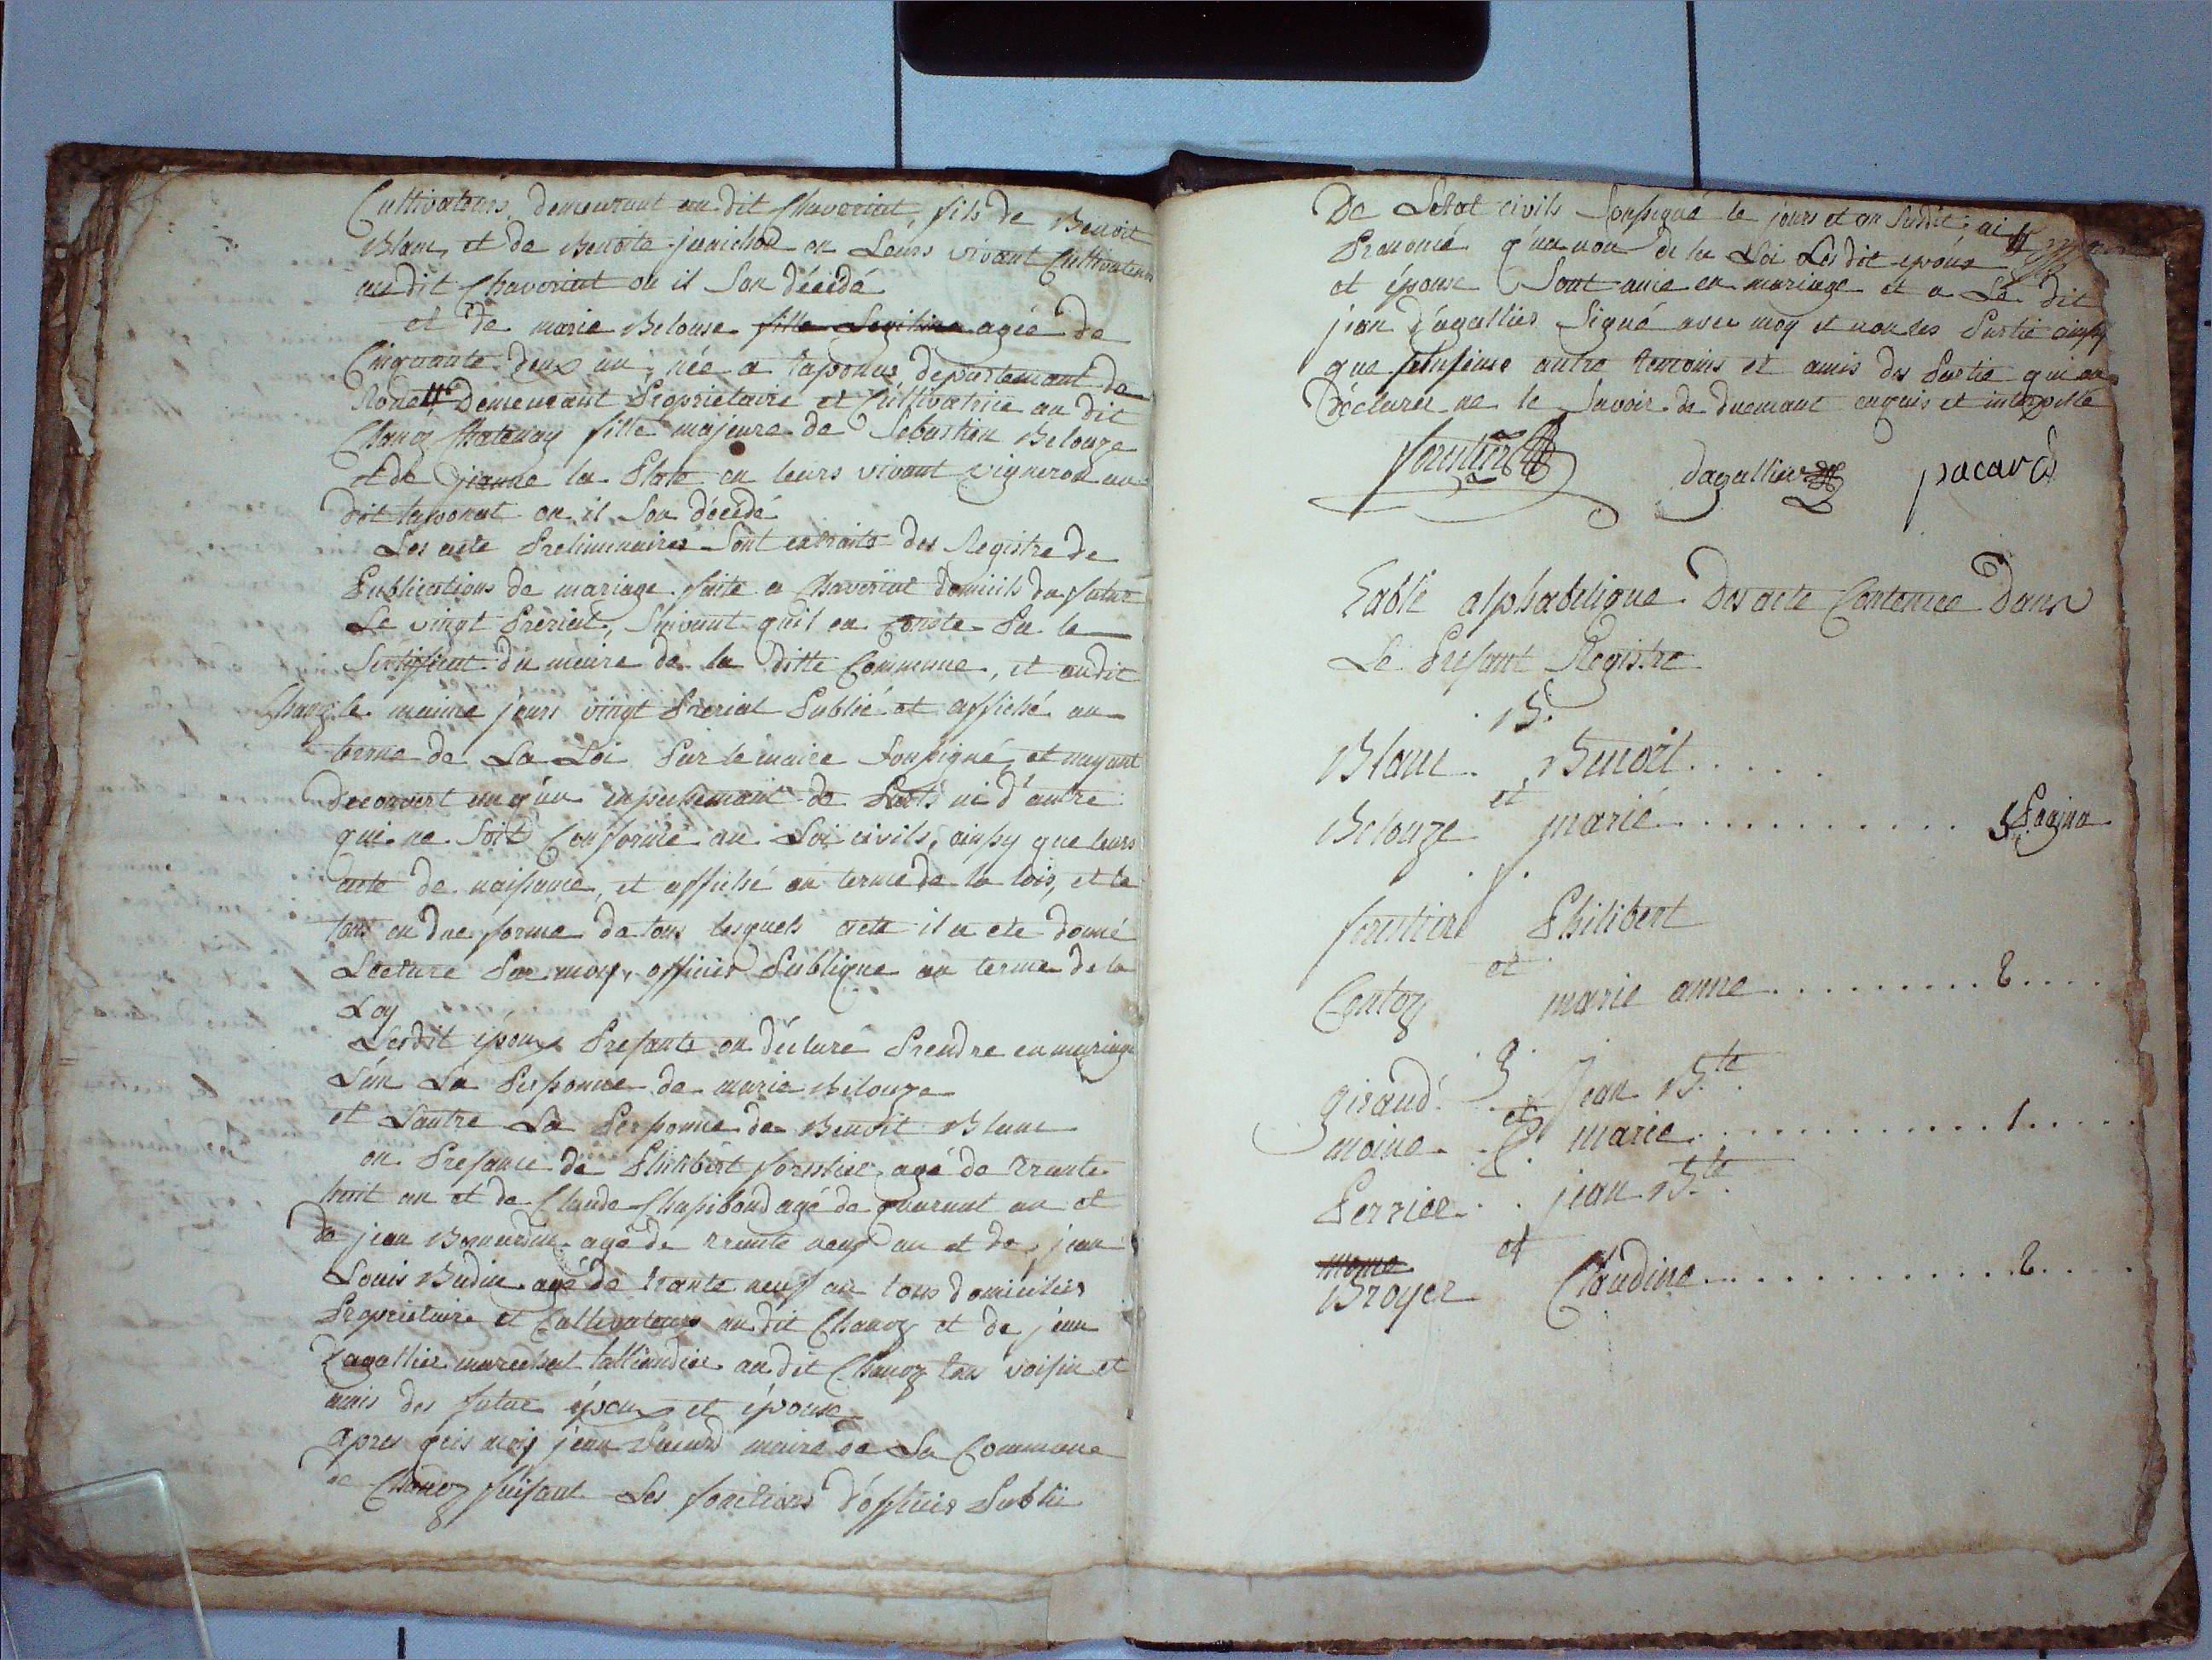 Cultivateurs, demeurant au dit Chaveriat, fils de Benoit
Blanc, et de Benoite junichon en Leurs vivant Cultivateurs
au dit Chaveriat ou il Son décédé
et de marie Belouse fille Legitime agée de
Cinquante deux an, née a taponas departement de
Rone Demeurant Propriétaire et Cultivatrice au dit
Chanoz Chatenay fille majeure de Sébastien Belouze
et de jeanne la Plate en leurs vivant vigneron au
dit taponat ou il Son décédé
Les acte Preliminaires Sont extraits des Registre de
Publications de mariage faite a Chaveriat domicils du futur
Le vingt Prerial, Suivant quil en Conste Par le
Sertifficat du maire de la ditte Commune, et audit
Chanoz le maime jours vingt Prerial Publié et affiché au
terme de La Loi Par le maire Soussigné, et nayant
decouvert auq'un enpechemant de Parts ni d'autre
qui ne Soit Conforme au Loi civils, ainsy que leurs
acte de naissance, et affiché au terme de la lois, et le
tous en due forme de tous lesquels acte il a ete donné
Lecture Par moy, officier Publique au terme de la
Loy
Lesdit époux Presante on déclaré Prendre en mariage
L'un La Personne de marie Belouze
et Lautre La Personne de Benoit Blanc
en Presance de Philibert forestier, agé de trante
huit an et de Claude Chassiboud agé de quarant an et
de jean Bernardin agé de trante neuf an et de jean
Louis Budin agé de trante neuf an tous domiciliés
Propriétaire et Cultivateurs au dit Chanoz et de jean
Dagallier marechal talliandier au dit Chanoz tous voisin et
amis des futur époux et épouse
apres quois moy jean Pacard maire de La Commune
de Chanoz faisant Les fonctions d'officier Public
De Letat civils Soussigné le jours et an Susdit, ai
Prononcé q'ua non de la Loi Les dit époux
et épouse Sont unie en mariage et a Le dit
jean Dagallier Signé avec moy et non les Partie ainsy
que plusieurs autre temoins et amis des Partie qui on
Déclarer ne le Savoir de duemant enquis et interpellé
forestier dagallier pacard
Table alphabetique Des acte Contenue Dans
Le Presant Registre
. B.
Blanc. Benoit . . . . .
et
Belouze marie . . . . . . . . . . . 3 Pagina
. f.
forestier Philibert
et
Contoz marie anne . . . . . . . . . 2 . . . .
. g.
giraud. . Jean B.te
et
moine . . marie . . . . . . . . . . . . . 1 . . . . .
Perrier . . jean B.te
et
moine
Broyer Claudine . . . . . . . . . . . . 2 . . . .